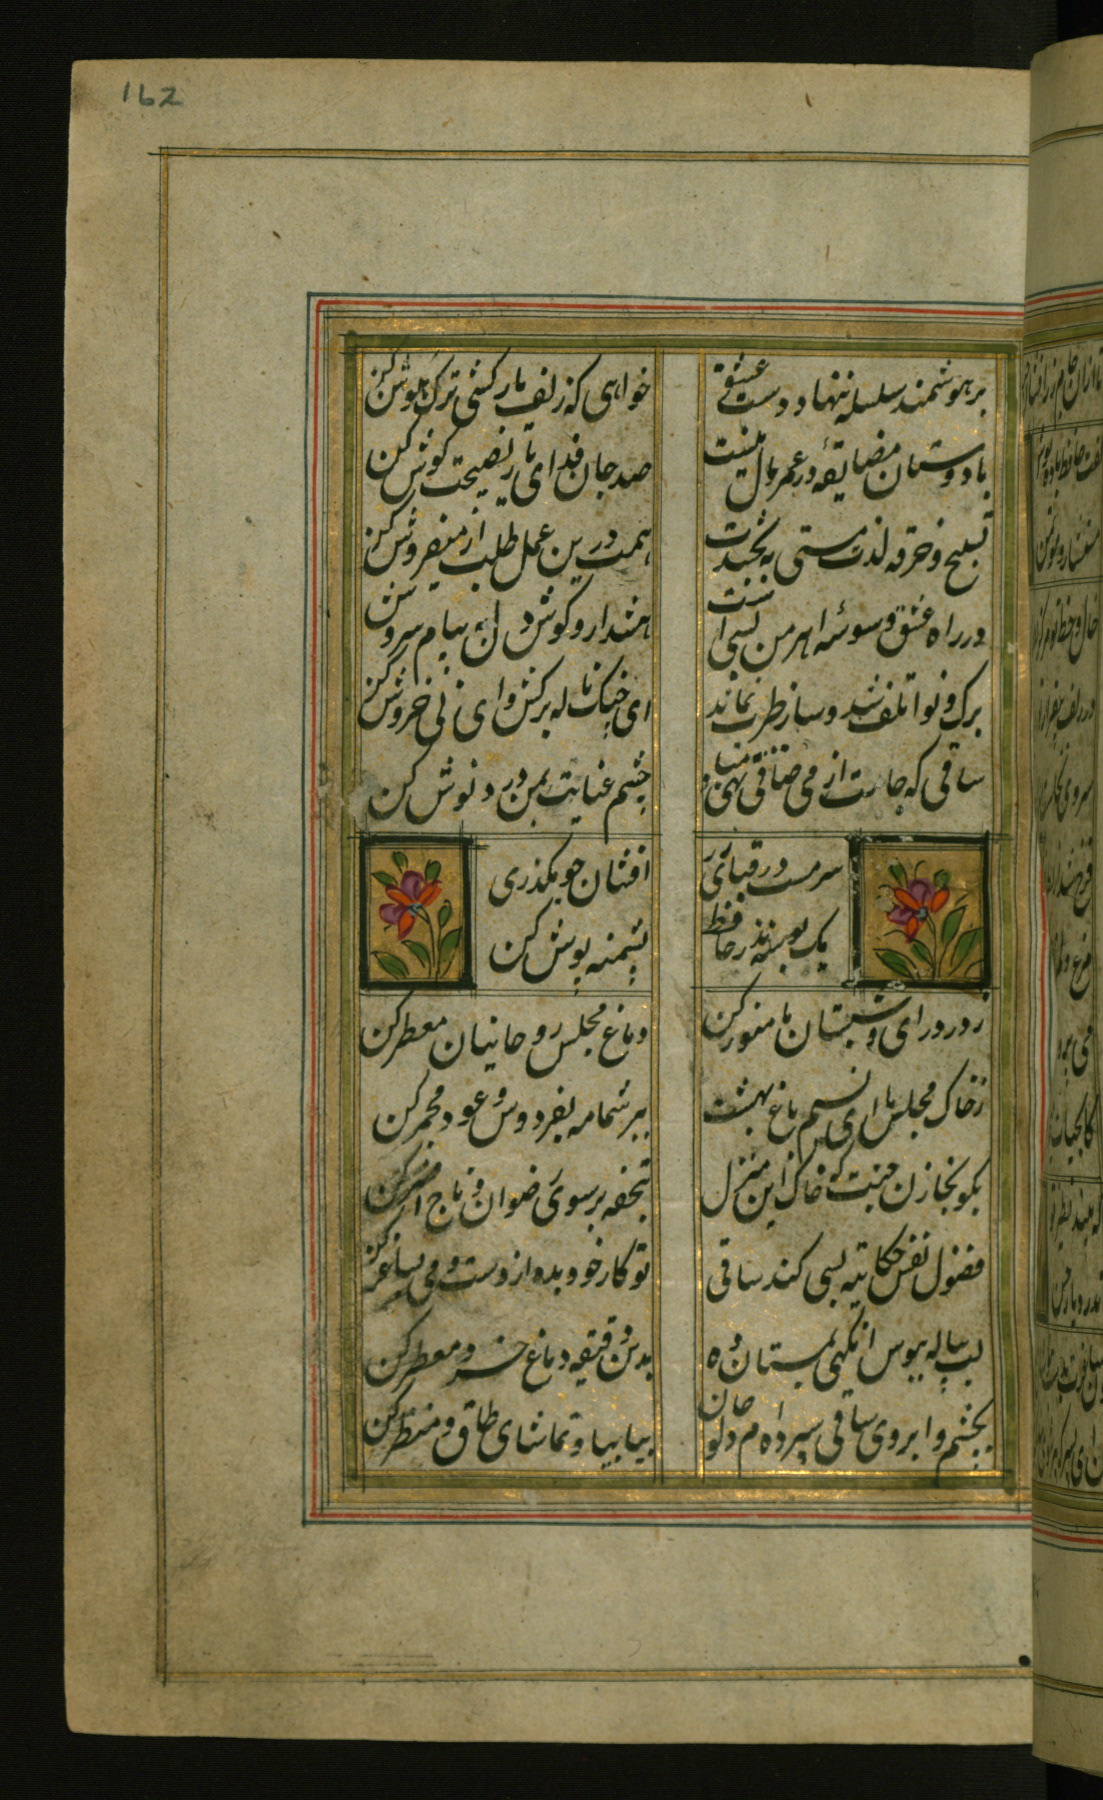 162
بر هوشمند سلسله ننهاد دست عشق
خواهی که زلف یار کشی ترک هوش کن
با دوستان مضایقه در عمر و مال نیست
صد جان فدای یار نصیحت نیوش کن
تسبیح و خرقه لذت مستی نبخشدت
همت درین عمل طلب از میفروش کن
در راه عشق وسوسه اهرمن بسی است
هشدار و گوش دل به پیام سروش کن
برک و نوا تلف شد و ساز طرب نماند
ای چنک ناله برکش وای نی خروش کن
ساقی که جامت از می صافی تهی مباد
چشم عنایت بمن دردنوش کن
سرمست در قبای زر
افشان چو بکذری
یک بوسه نذر حافظ
پشمینه پوش کن
ز در درای و شبستان ما منور کن
دماغ مجلس روحانیان معطر کن
ز خاک مجلس ما ای نسیم باغ بهشت
ببر شمامه بفردوس و عود مجمر کن
بکو بخازن جنت که خاک این منزل
بتحفه بر سوی رضوان و تاج افسر کن
فضول نفس حکایت بسی کند ساقی
تو کار خود بده از دست و می بساغر کن
لب پیاله ببوس انکهی بمستان ده
بدین دقیقه دماغ خرد معطر کن
بچشم و ابروی ساقی سپرده ام دل و جان
بیا بیا و تماشای طاق و منظر کن